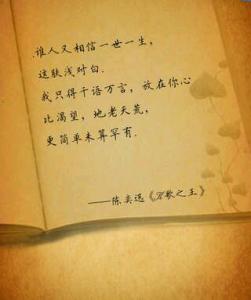 .谁人又相信一世一生，
这肤浅对白.
我只得千语万言，放在你心
比渴望，地老天荒，
更简单未算罕有.
——陈奕迅《K歌之王》